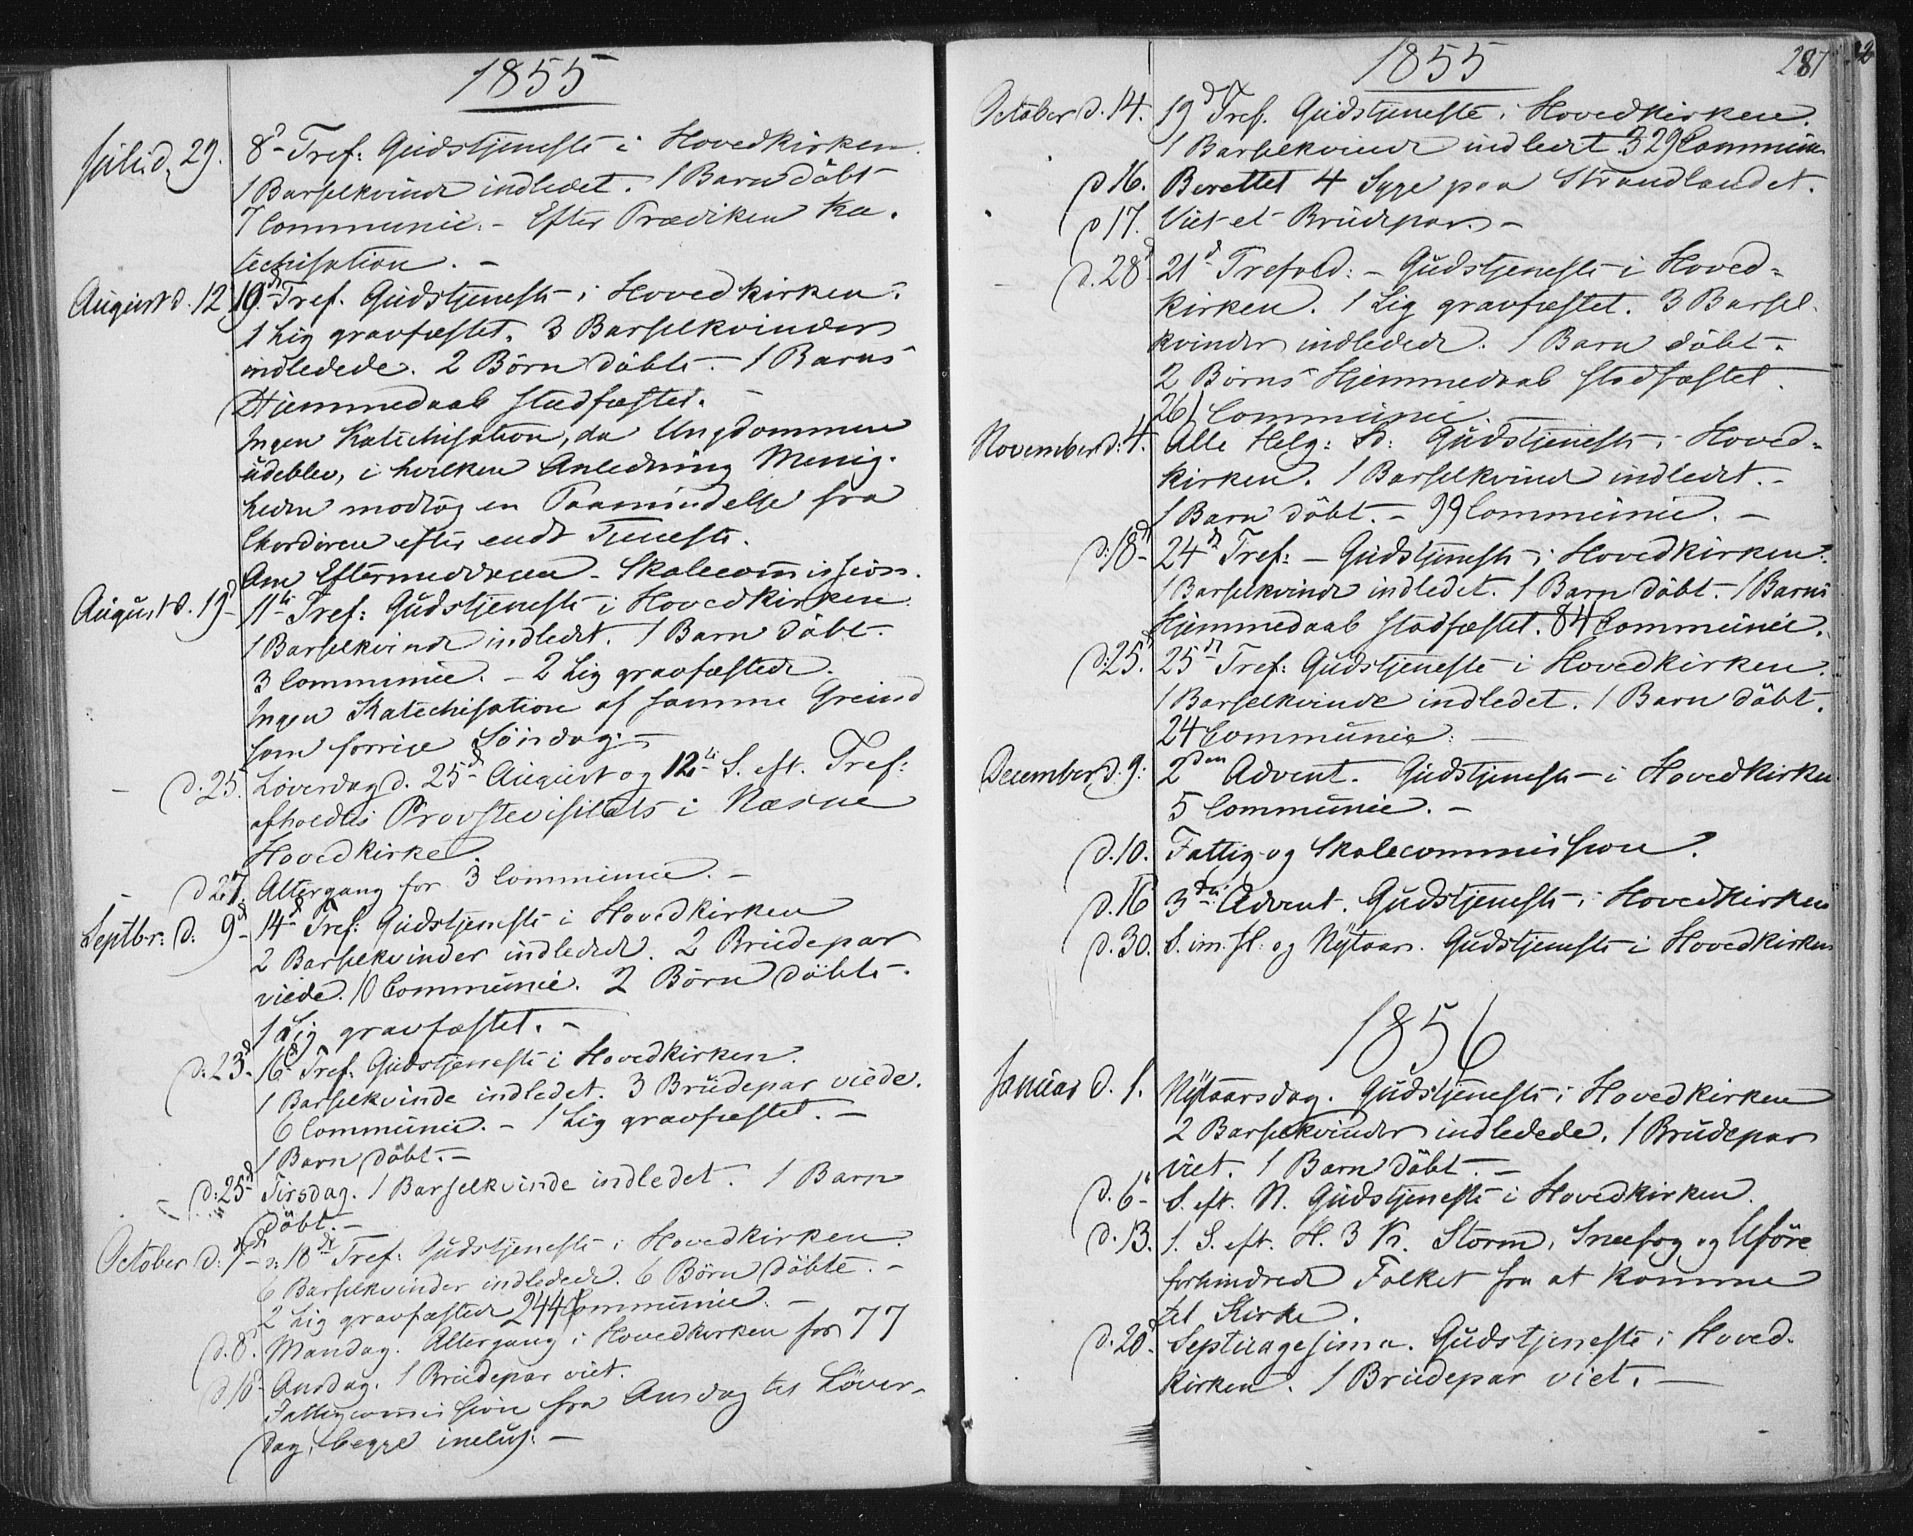 1855
Juli d. 29. 8d Tref: Gudstjeneste i Hovedkirken.
1 Barselkvinde indledet. 1 Barn döbt
7 Communic: - Efter Prædiken Ka-
techisation. -
August d. 12. 10d Tref. Gudstjeneste i Hovedkirken.
1 Lig gravfæstet. 3 Barselkvinder
indledede. 2 Börn döbte. - 1 Barns
Hjemmedaab stadfæstet. -
Ingen Katechisation, da Ungdommen
udeblev, i hvilken Anledning Menig-
heden modtog en Paamindelse fra
Chordören efter endt Tjeneste.
Om Eftermiddagen - Skolecommission.
August d. 19d 11te Tref: Gudstjeneste i Hovedkirken.
1 Barselkvinde indledet. 1 Barn döbt.
3 Communic. - 2 Lig gravfæstede.
Ingen Katechisation af samme Grund
som forrige Söndag. -
- d. 25. Löverdag d. 25d August og 12te S. eft. Tref:
afholdtes Provstevisitats i Næsne
Hovedkirke.
- d 27. Altergang for 3 Communic. -
Septbr: d: 9d 14d Tref: Gudstjeneste i Hovedkirken
2 Barselkvinder indledede. 2 Brudepar
viede. 10 Communic. 2 Börn döbte.
1 Lig gravfæstet. -
d. 23d 16d Tref. Gudstjeneste i Hovedkirken.
1 Barselkvinde indledet. 3 Brudepar viede.
6 Communic. - 1 Lig gravfæstet. -
1 Barn döbt. -
- d: 25d Tirsdag. 1 Barselkvinde indledet. 1 Barn
döbt. -
October d: 7d 18de Tref: Gudstjeneste i Hovedkirken
6 Barselkvinder indledede. 6 Börn döbte. -
2 Lig gravfæstede 244 Communic. -
d. 8. Mandag. Altergang i Hovedkirken for 77
d 10 Onsdag. 1 Brudepar viet.
Fattigcommission fra Onsdag til Löver-
dag, begge inclus: -
1855
287
October d. 14. 19d Tref. Gudstjeneste i Hovedkirken.
1 Barselkvinde indledt. 329 Commun
d 16. Berettet 4 Syge paa Strandlandet.
d 17. Viet et Brudepar. -
d. 28d 21d Trefold: - Gudstjeneste i Hoved-
kirken. 1 Lig gravfæstet. 3 Barsel-
kvinder indledede. 1 Barn döbt.
2 Börns Hjemmedaab stadfæstet.
261 Communic.
November d: 4. Alle Helg: D: Gudstjeneste i Hoved-
kirken. 1 Barselkvinde indledet. -
1 Barn döbt. - 99 Communic. -
d: 18d 24d Tref: - Gudstjeneste i Hovedkirken.
1 Barselkvinde indledet. 1 Barn döbt. - 1 Barns
Hjemmedaab stadfæstet. 84 Communic.
d: 25d 25d Tref: Gudstjeneste i Hovedkirken.
1 Barselkvinde indledet. 1 Barn döbt.
24 Communic: -
December d. 9: 2den Advent. Gudstjeneste i Hovedkirken
5 Communic. -
d. 10. Fattig- og Skolecommission.
d. 16 3die Advent. Gudstjeneste i Hovedkirken
d. 30. S. im. Jl. og Nytaar. Gudstjeneste i Hovedkirken
1856
Januar d. 1. Nytaarsdag. Gudstjeneste i Hovedkirken
2 Barselkvinder indledede. 1 Brudepar
viet. 1 Barn döbt. -
d. 6d S. eft. N. Gudstjeneste i Hovedkirken.
d. 13. 1. S. eft. H. 3 K. Storm, Sneefog og Uföre
forhindrede Folket fra at komme
til Kirke.
d. 20d Septuagesima. Gudstjeneste i Hoved-
kirken. 1 Brudepar viet. -